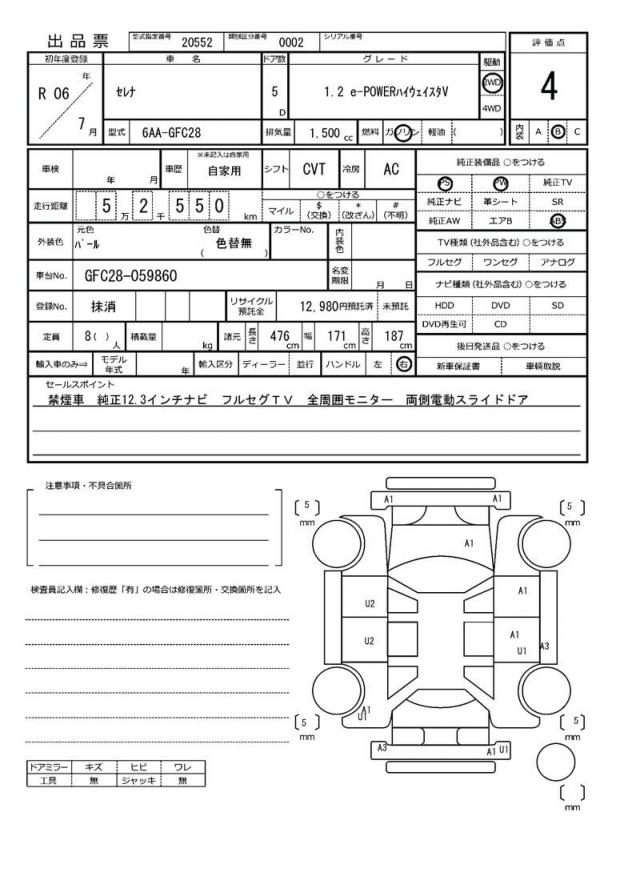 出品票 型式指定番号 20552 類別区分番号 0002 シリアル番号
初年度登録 車名 ドア数 グレード 駆動 評価点
R 06 年 7 月 セレナ 5 D 1.2 e-POWERハイウェイスタV 2WD 4WD 4
型式 6AA-GFC28 排気量 1.500 cc 燃料 ガソリン 軽油 ( ) 内装 A B C
車検 年 月 車歴 ※未記入は自家用 自家用 シフト CVT 冷房 AC
走行距離 5 万 2 千 5 5 0 km ○をつける マイル $ (交換) * (改ざん) # (不明)
外装色 元色 パール 色替 ( 色替無 ) カラーNo. 内装色
車台No. GFC28-059860 名変期限 月 日
登録No. 抹消 リサイクル預託金 12,980円預託済 未預託
定員 8( ) 人 積載量 kg 諸元 長さ 476 cm 幅 171 cm 高さ 187 cm
輸入車のみ⇒ モデル年式 年 輸入区分 ディーラー 並行 ハンドル 左 右
純正装備品 ○をつける
PS PW 純正TV
純正ナビ 革シート SR
純正AW エアB ABS
TV種類 (社外品含む) ○をつける
フルセグ ワンセグ アナログ
ナビ種類 (社外品含む) ○をつける
HDD DVD SD
DVD再生可 CD
後日発送品 ○をつける
新車保証書 車輌取説
セールスポイント
禁煙車 純正12.3インチナビ フルセグTV 全周囲モニター 両側電動スライドドア
注意事項・不具合箇所
検査員記入欄：修復歴「有」の場合は修復箇所・交換箇所を記入
ドアミラー キズ ヒビ ワレ
工具 無 ジャッキ 無
A1 A1
5 mm 5 mm
A1
U2 A1
U2 A1 U1 A3
A1 U1
5 mm 5 mm
A3 A1 U1
mm